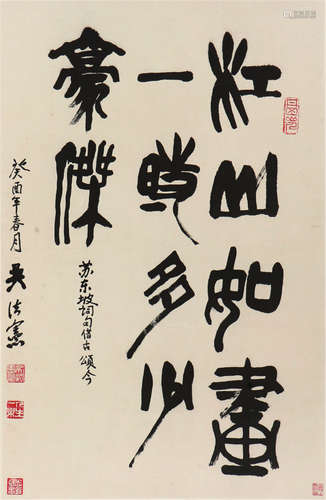 江山如畫
一時多少
豪傑
苏东坡词句借古頌今
癸酉年春月
吳法憲